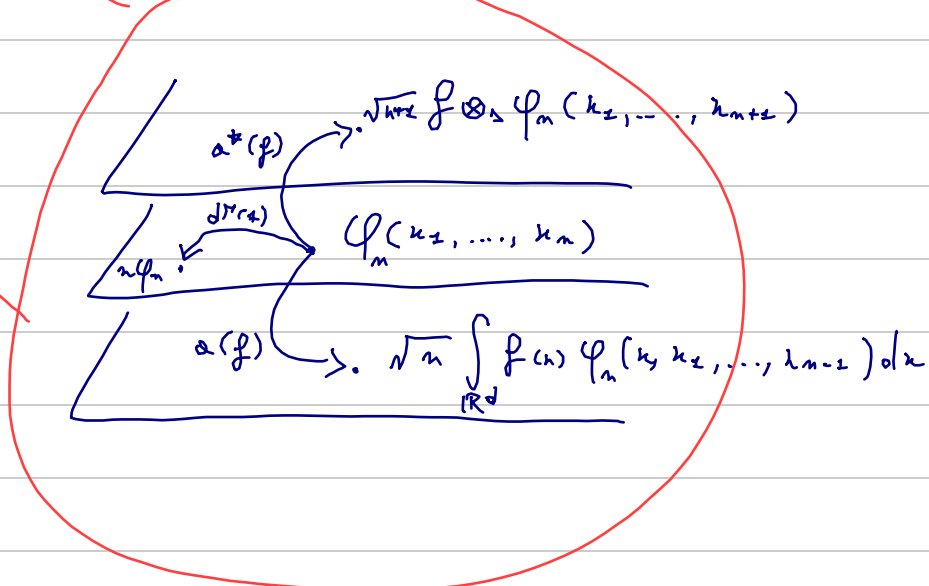 √n+1 f ⊗ₛ φₙ(x₁, ..., xₙ₊₁)
a*(f)
dΓ(1)
φₙ(x₁, ..., xₙ)
nφₙ
a(f)
√n ∫ f(x) φₙ(x, x₁, ..., xₙ₋₁) dx
ℝᵈ